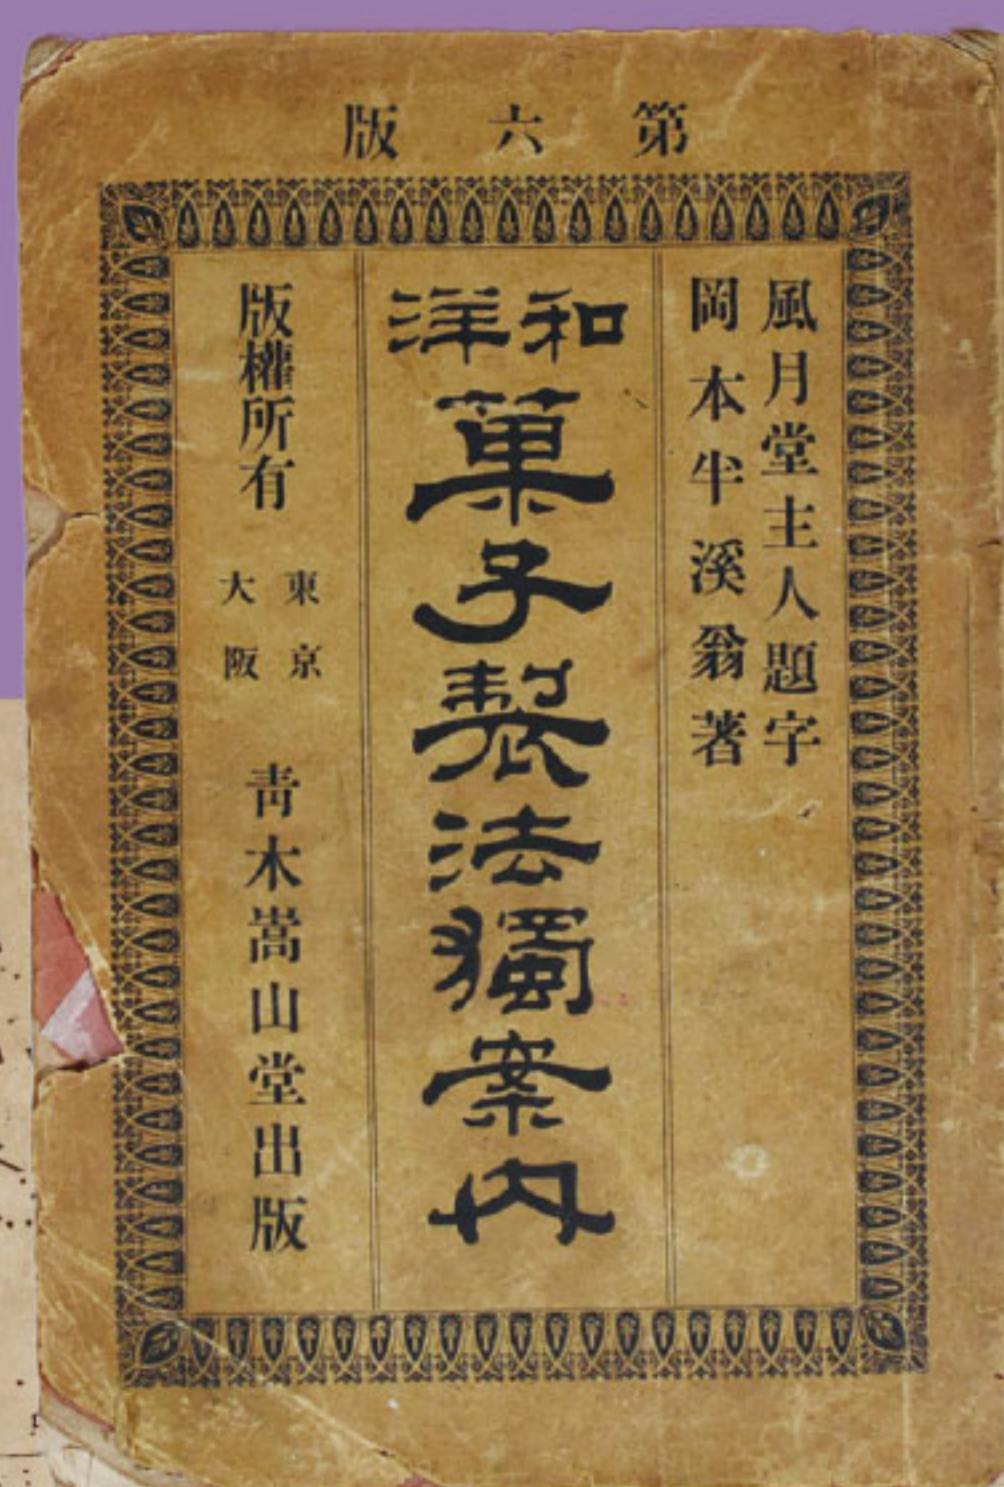 第六版
風月堂主人題字
岡本半溪翁著
和洋
菓子製法獨案内
版權所有
東京
大阪
靑木嵩山堂出版